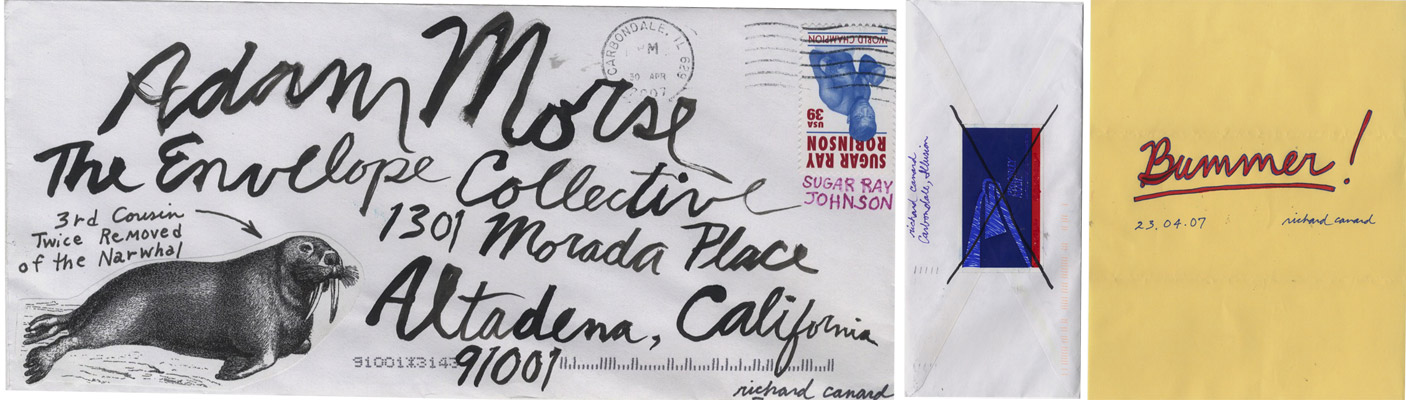 Adam Morse
The Envelope Collective
1301 Morada Place
Altadena, California
91001
3rd Cousin
Twice Removed
of the Narwhal
CARBONDALE, IL 629
PM
30 APR
2007
WORLD CHAMPION
USA 39
SUGAR RAY
ROBINSON
SUGAR RAY
JOHNSON
richard canard
richard canard
Carbondale, Illusion
Bummer!
23.04.07 richard canard